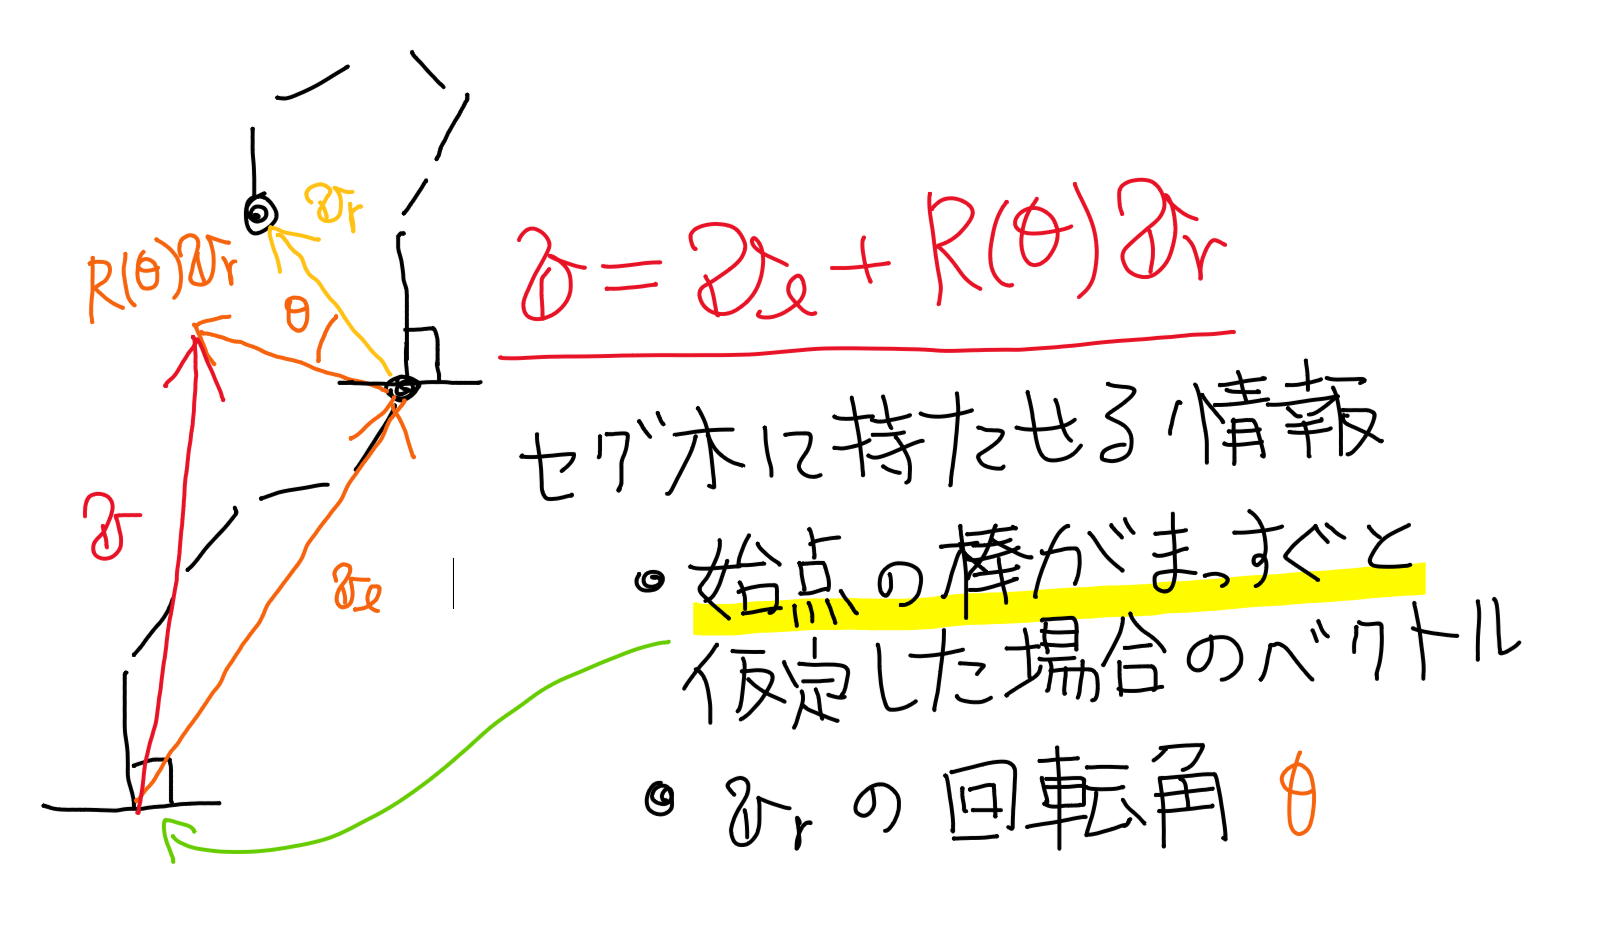 v_r
R(θ)v_r
θ
v = v_l + R(θ)v_r
セグ木に持たせる情報
v
v_l
• 始点の棒がまっすぐと
仮定した場合のベクトル
• v_rの回転角 θ